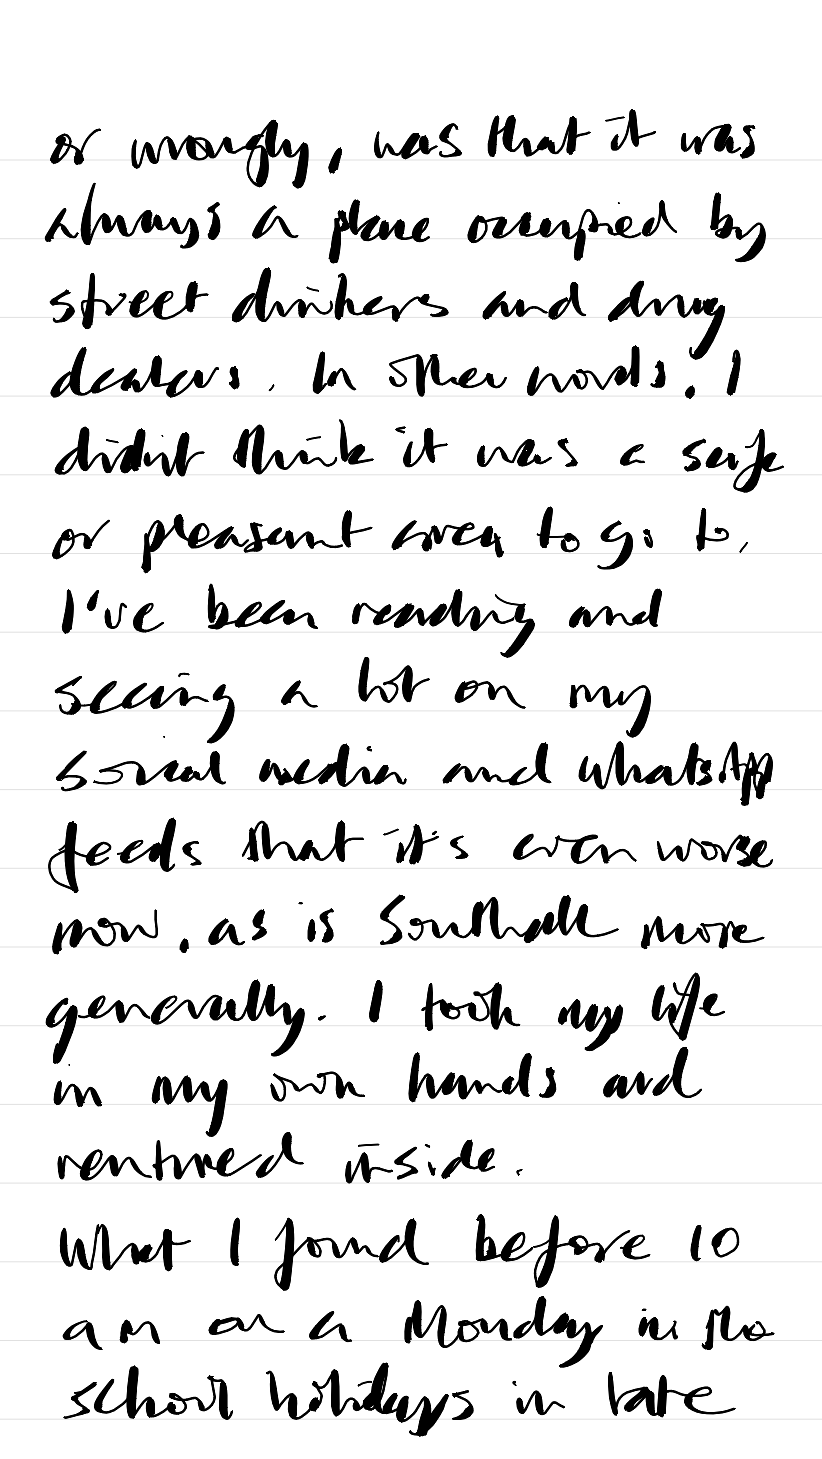 or wrongly, was that it was
always a place occupied by
street drinkers and drug
dealers. In other words, I
didn't think it was a safe
or pleasant area to go to.
I've been reading and
seeing a lot on my
social media and WhatsApp
feeds that it's even worse
now, as is Southall more
generally. I took my life
in my own hands and
ventured inside.
What I found before 10
am on a Monday in the
school holidays in late